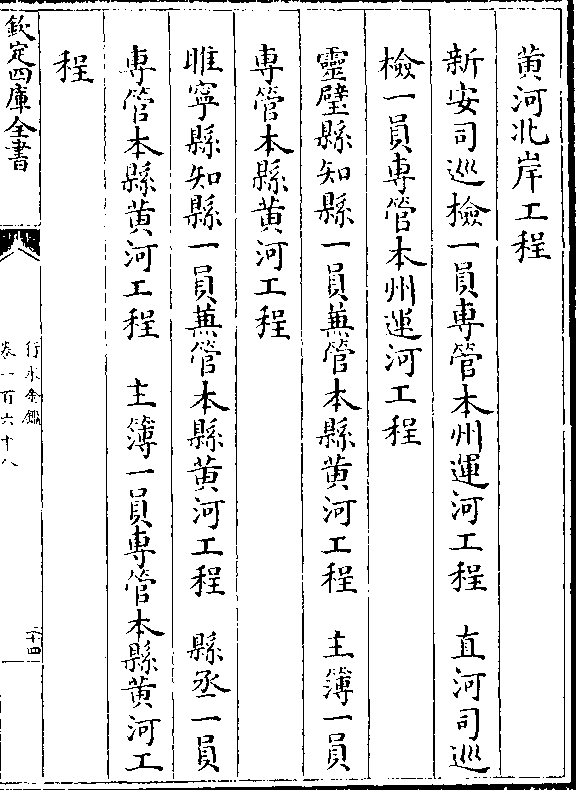 黄河北岸工程
新安司巡檢一員専管本州運河工程　直河司巡
檢一員専管本州運河工程
靈璧縣知縣一員兼管本縣黄河工程　主簿一員
専管本縣黄河工程
睢寧縣知縣一員兼管本縣黄河工程　縣丞一員
専管本縣黄河工程　主簿一員専管本縣黄河工
程
欽定四庫全書
行水金鑑
卷一百六十八
二十四